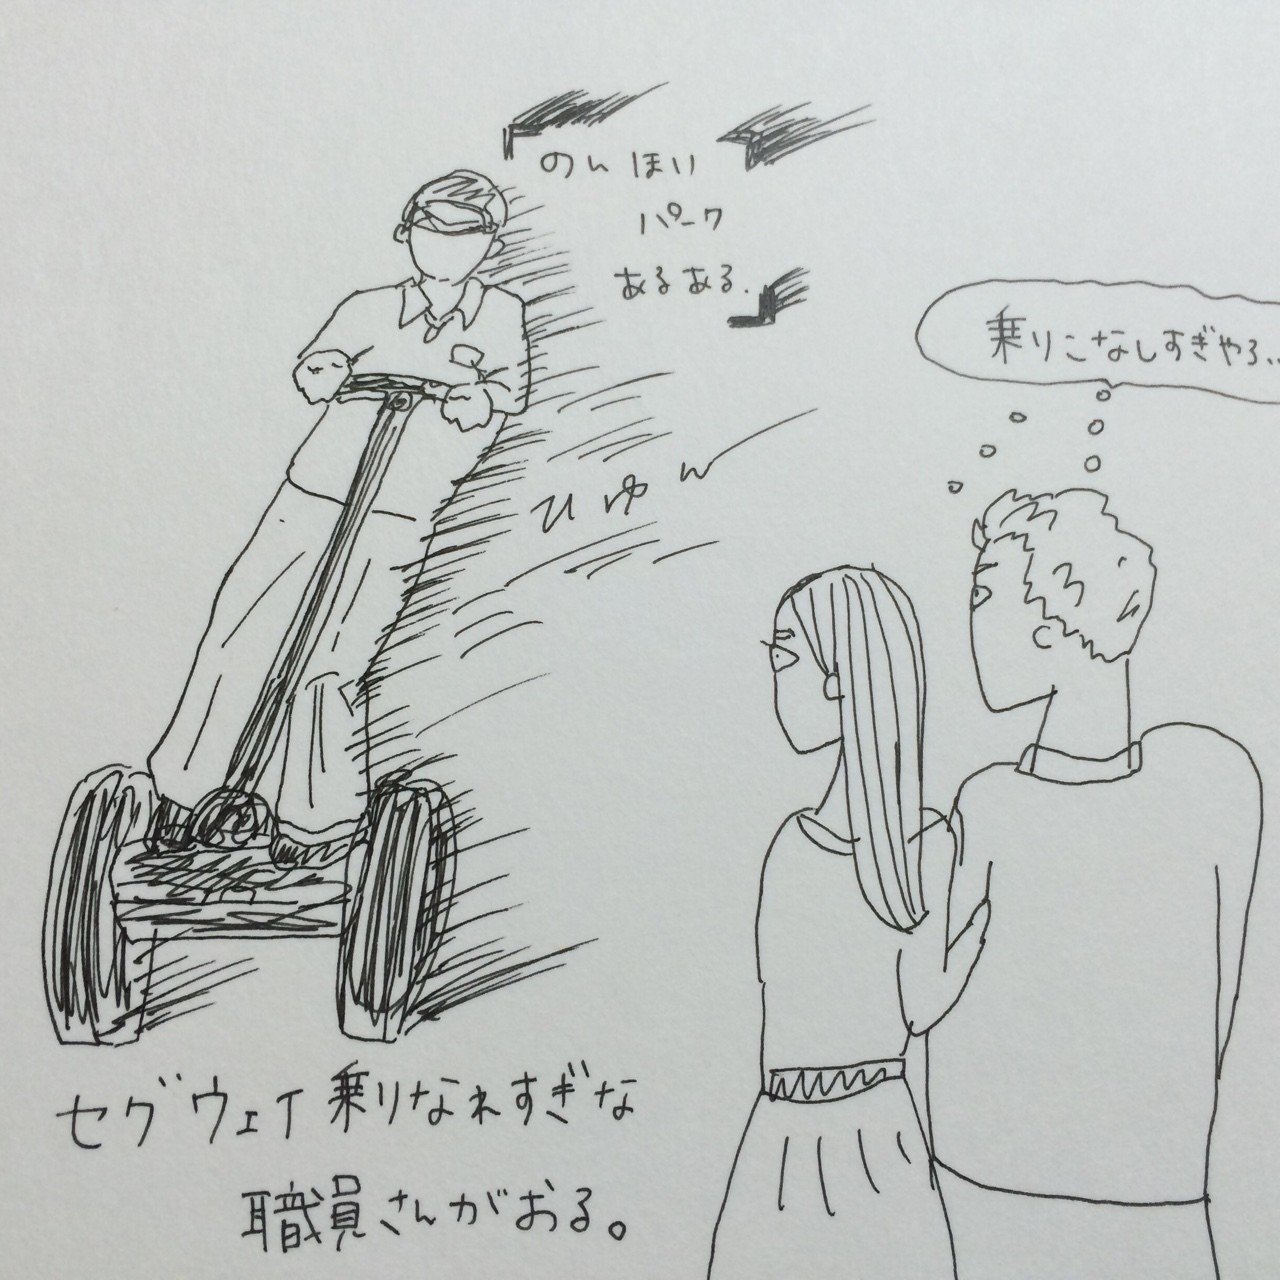 のんほい
パーク
あるある.
乗りこなしすぎやろ..
ひゅん
セグウェイ乗りなれすぎな
職員さんがおる。